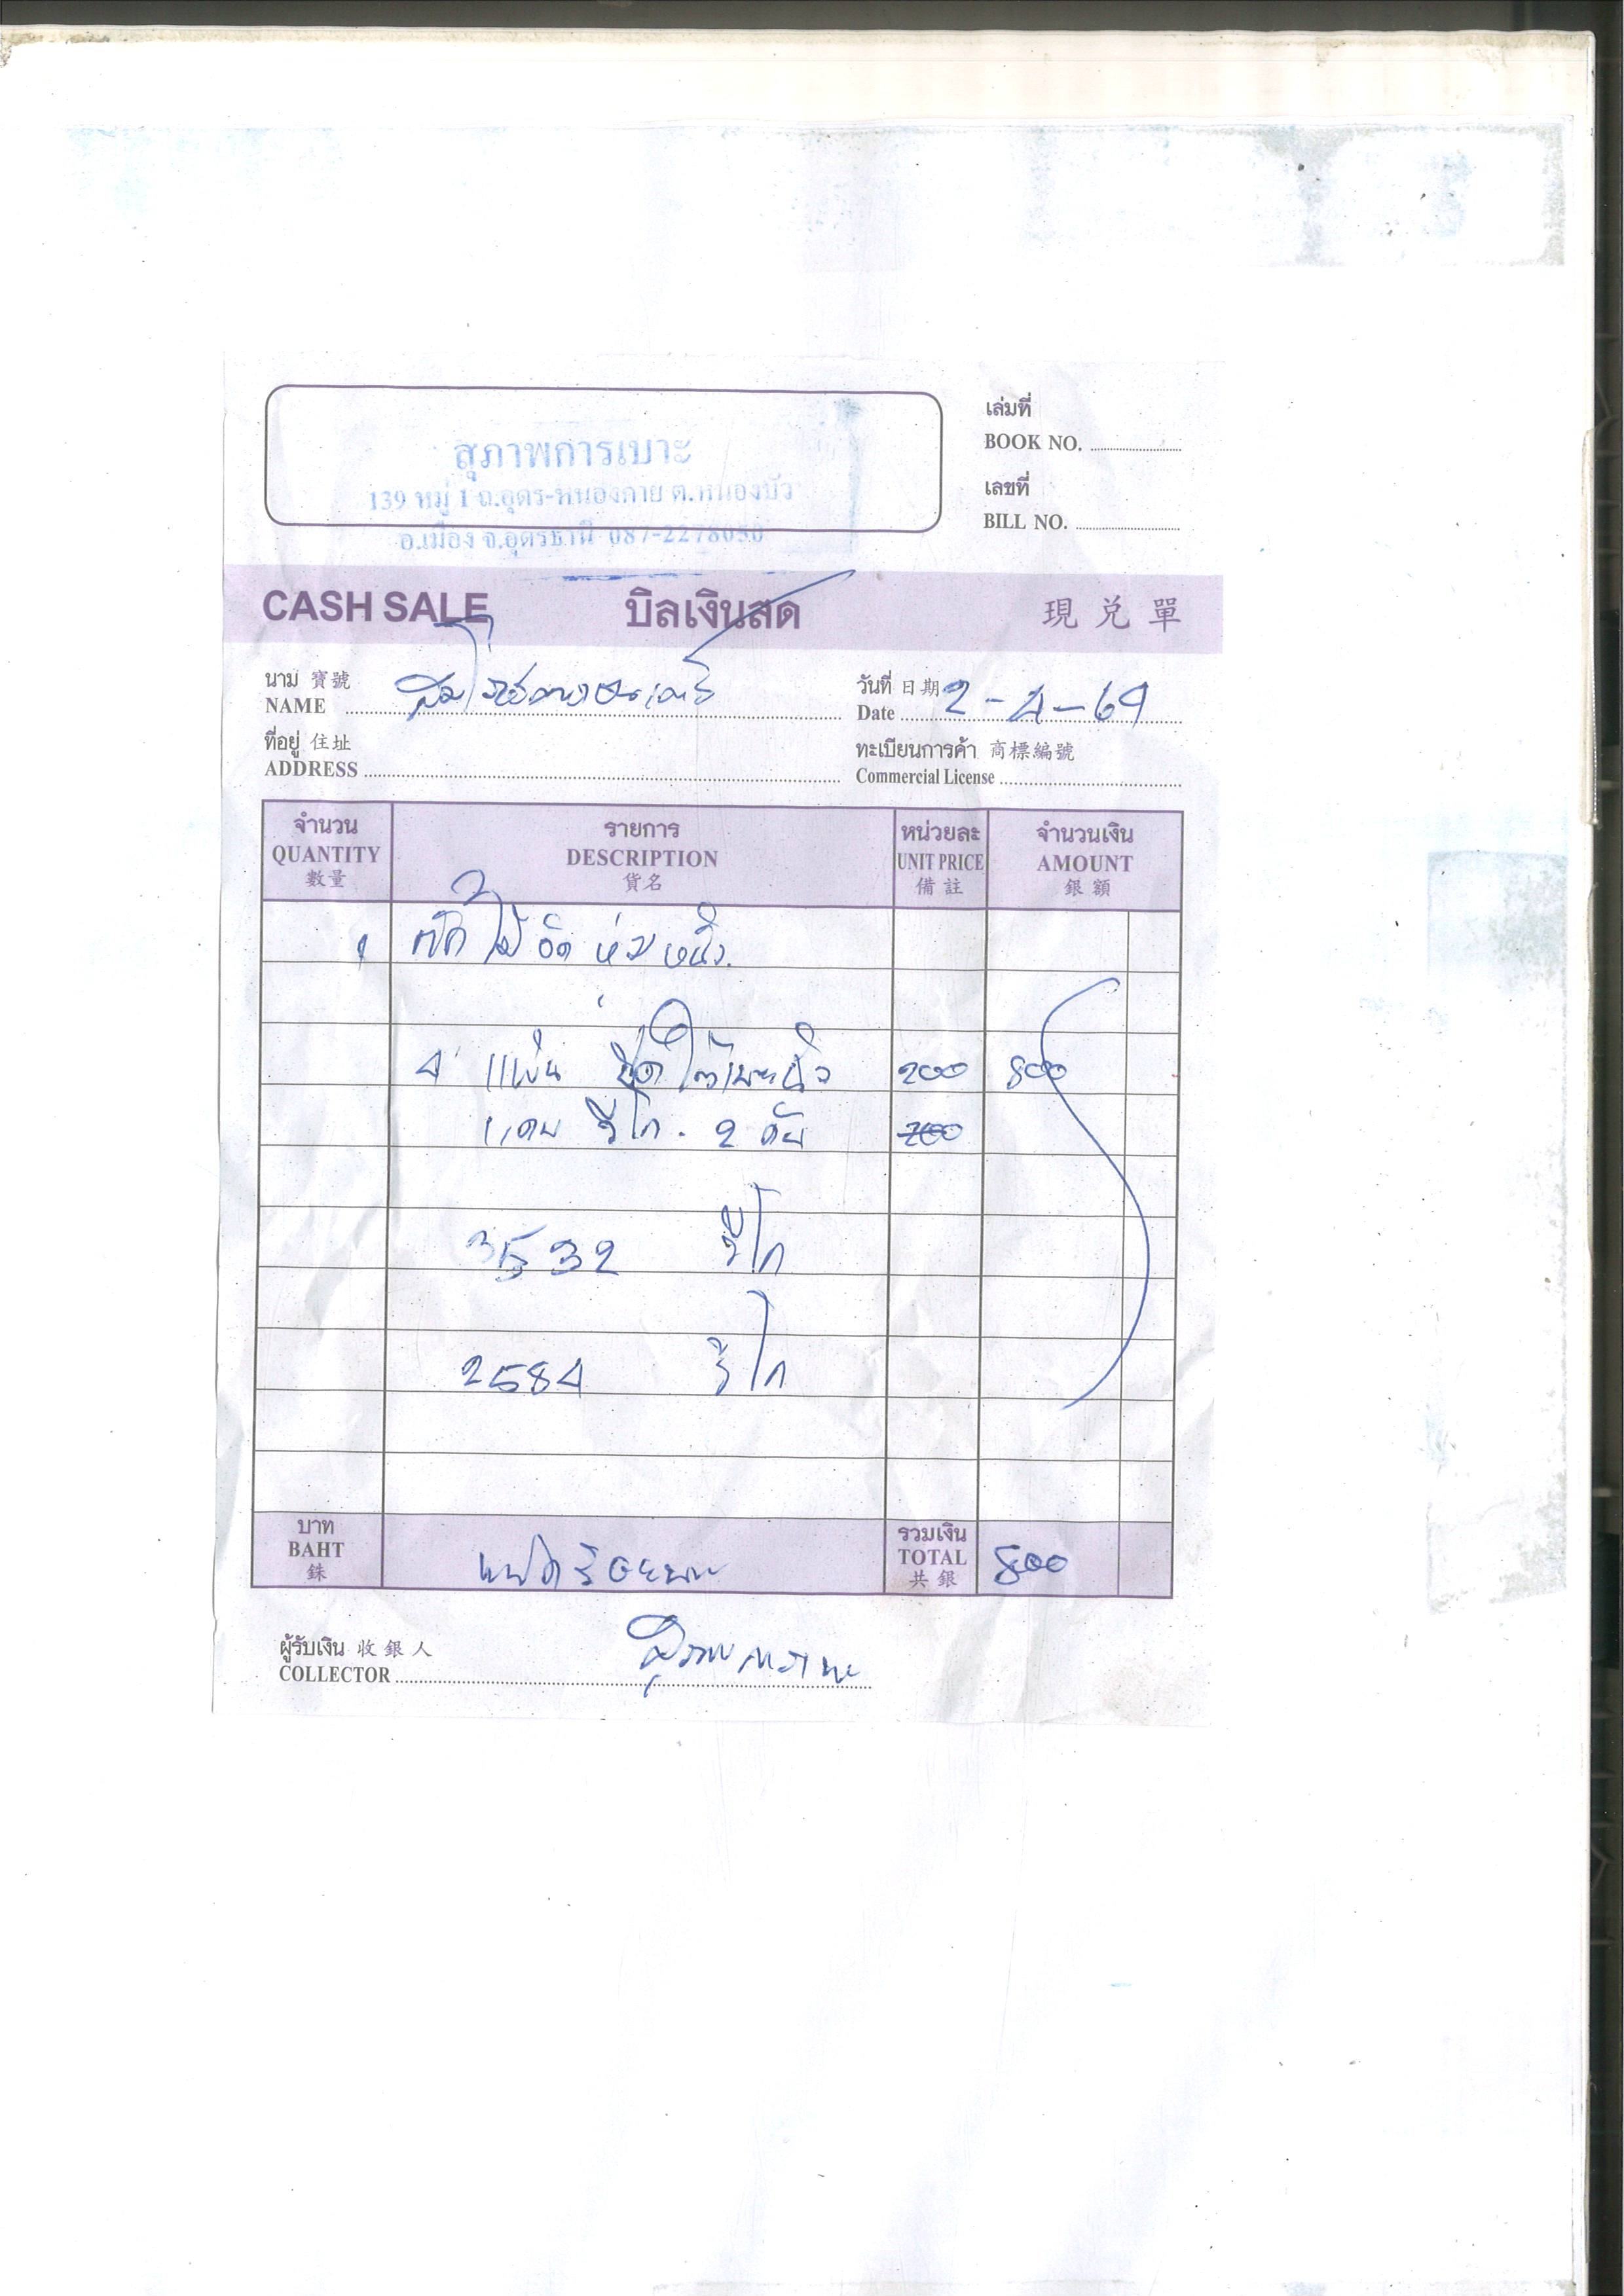 สุภาพการเบาะ
139 หมู่ 1 ถ.อุดร-หนองคาย ต.หนองบัว
อ.เมือง จ.อุดรธานี 087-2278050
เล่มที่
BOOK NO.
เลขที่
BILL NO.
CASH SALE บิลเงินสด 現兌單
นาม 寶號
NAME
วันที่ 日期
Date 2-4-69
ที่อยู่ 住址
ADDRESS
ทะเบียนการค้า 商標編號
Commercial License
จำนวน รายการ หน่วยละ จำนวนเงิน
QUANTITY DESCRIPTION UNIT PRICE AMOUNT
數量 貨名 備註 銀額
1 ไม้อัด หุ้มหนัง
4 แผ่น 200 800
แคบ วีโก้ . 2 คัน 200
3532 วีโก้
2584 วีโก้
บาท รวมเงิน
BAHT แปดร้อยบาท TOTAL 800
銖 共銀
ผู้รับเงิน 收銀人
COLLECTOR สุภาพการเบาะ